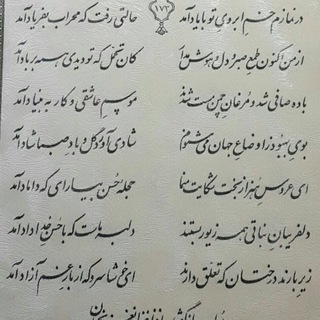 ۱۷۳
در نمازم خم ابروی تو با یاد آمد حالتی رفت که محراب بفریاد آمد
از من اکنون طمع صبر و دل و هوش مدار کان تحمل که تو دیدی همه بر باد آمد
باده صافی شد و مرغان چمن مست شدند موسم عاشقی و کار به بنیاد آمد
بوی بهبود ز اوضاع جهان می‌شنوم شادی آورد گل و باد صبا شاد آمد
ای عروس هنر از بخت شکایت منما حجله حسن بیارای که داماد آمد
دلفریبان نباتی همه زیور بستند دلبر ماست که با حسن خداداد آمد
زیر بارند درختان که تعلق دارند ای خوشا سرو که از بار غم آزاد آمد